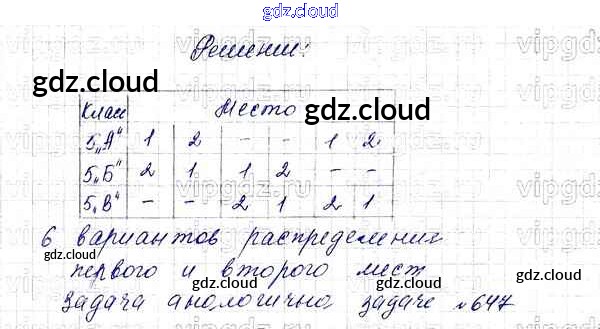 gdz.cloud
Решение:
gdz.cloud gdz.cloud
Класс Место
5„А" 1 2 – – 1 2
5„Б" 2 1 1 2 – –
5„В" – – 2 1 2 1
6 вариантов распределения
gdz.cloud gdz.cloud
первого и второго мест
gdz.cloud gdz.cloud
задача анологична задаче №647